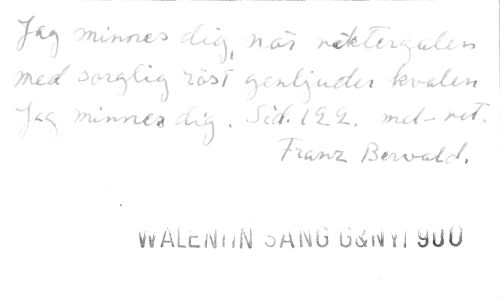 Jag minnes dig, när näktergalen
med sorglig röst genljuder kvalen
Jag minnes dig. Sid. 122. mel-ret.
Franz Berwald.
WALENTIN SÅNG G&NYT 900